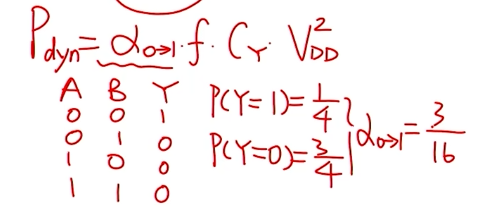 P_dyn = α_0→1 · f · C_Y · V_DD^2
A B Y
0 0 1
0 1 0
1 0 0
1 1 0
P(Y=1) = 1/4
P(Y=0) = 3/4
α_0→1 = 3/16